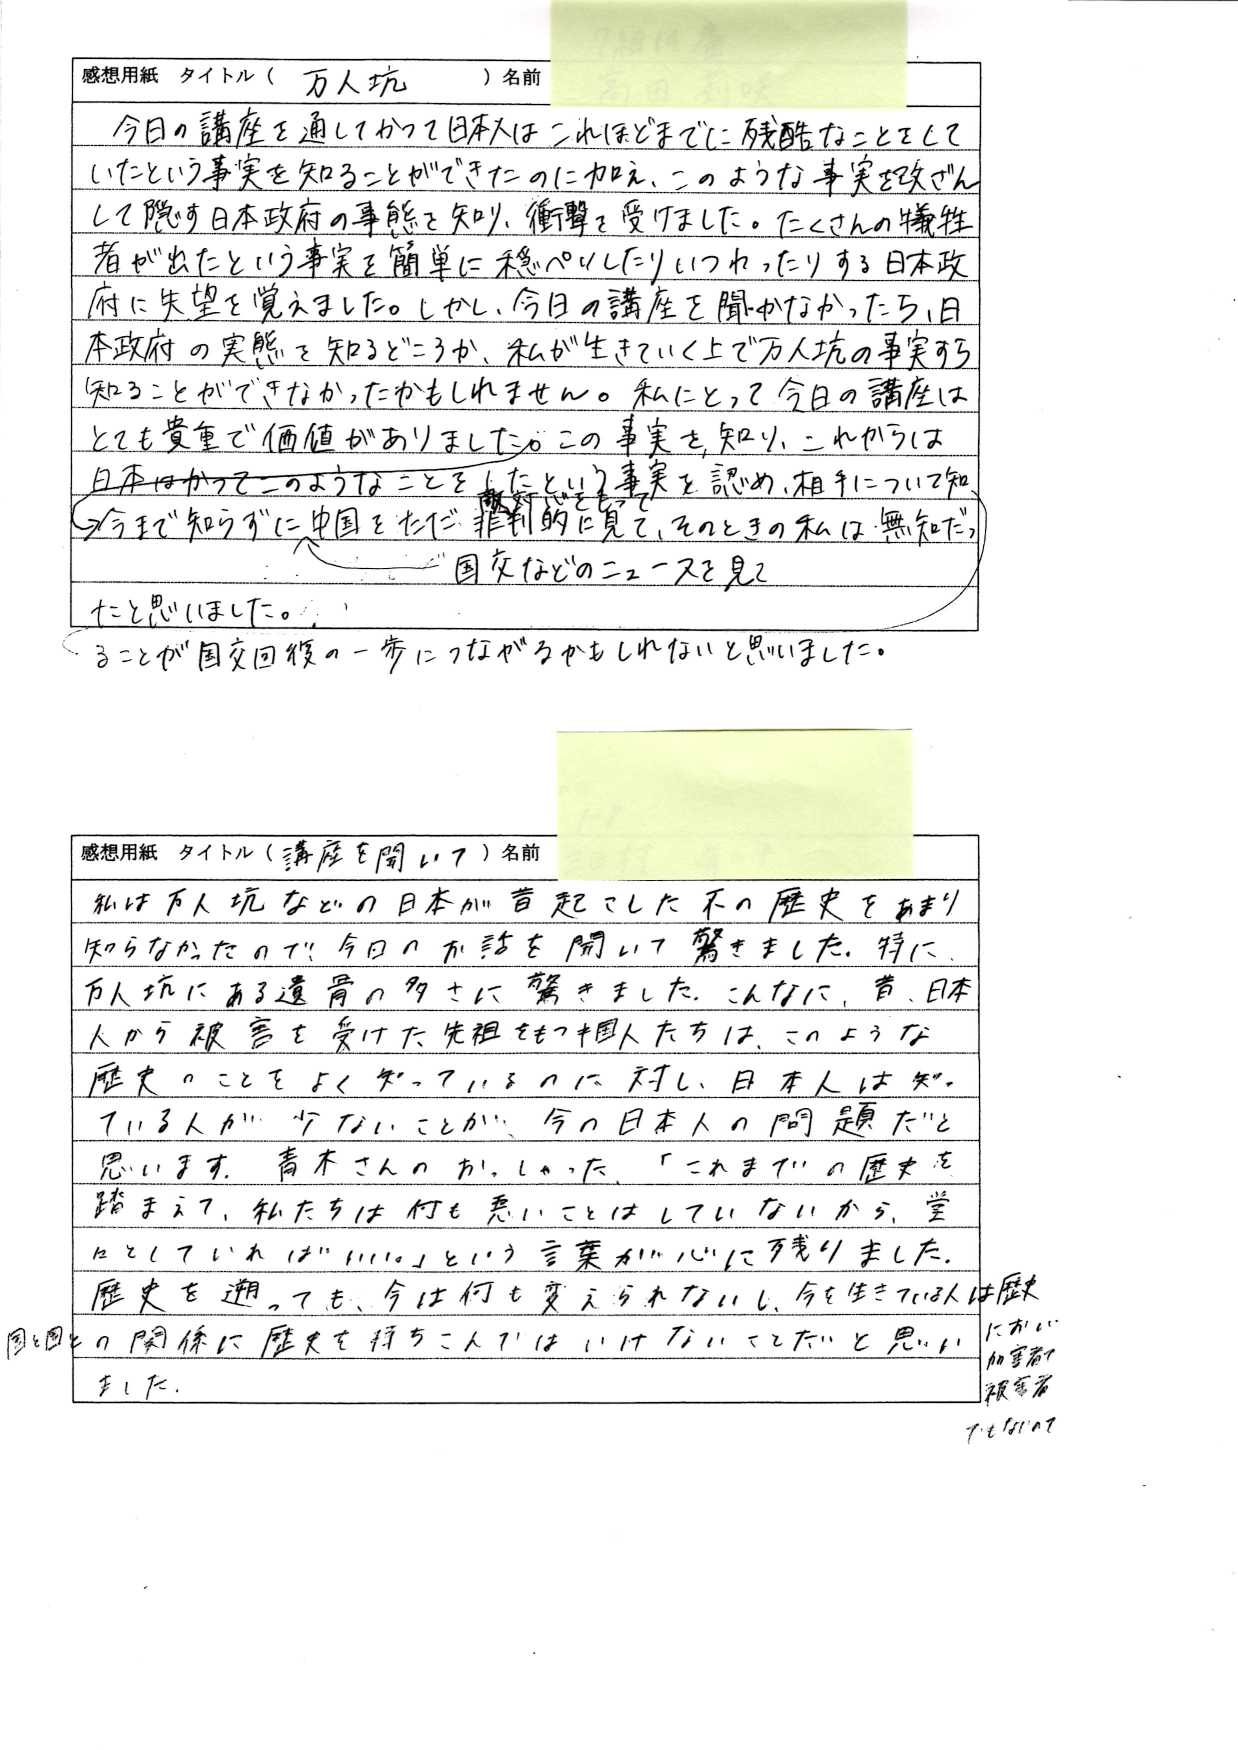 感想用紙 タイトル（ 万人坑 ）名前
今日の講座を通してかつて日本人はこれほどまでに残酷なことをして
いたという事実を知ることができたのに加え、このような事実を改ざん
して隠す日本政府の事態を知り、衝撃を受けました。たくさんの犠牲
者が出たという事実を簡単に穏ぺいしたりいつわったりする日本政
府に失望を覚えました。しかし、今日の講座を聞かなかったら、日
本政府の実態を知るどころか、私が生きていく上で万人坑の事実すら
知ることができなかったかもしれません。私にとって今日の講座は
とても貴重で価値がありました。この事実を知り、これからは
日本はかつてこのようなことをしたという事実を認め、相手について知
敵対心をもって
今まで知らずに中国をただ批判的に見て、そのときの私は無知だっ
国交などのニュースを見て
たと思いました。
ることが国交回復の一歩につながるかもしれないと思いました。
感想用紙 タイトル（ 講座を聞いて ）名前
私は万人坑などの日本が昔起こした不の歴史をあまり
知らなかったので、今日のお話を聞いて驚きました。特に、
万人坑にある遺骨の多さに驚きました。こんなに、昔、日本
人から被害を受けた先祖をもつ中国人たちは、このような
歴史のことをよく知っているのに対し、日本人は知っ
ている人が少ないことが、今の日本人の問題だと
思います。青木さんのおっしゃった、「これまでの歴史を
踏まえて、私たちは何も悪いことはしていないから、堂
々としていればいい。」という言葉が心に残りました。
歴史を遡っても、今は何も変えられないし、今を生きている人は歴史
において
加害者で
被害者
でもないので
国と国との関係に歴史を持ちこんではいけないことだと思い
ました。